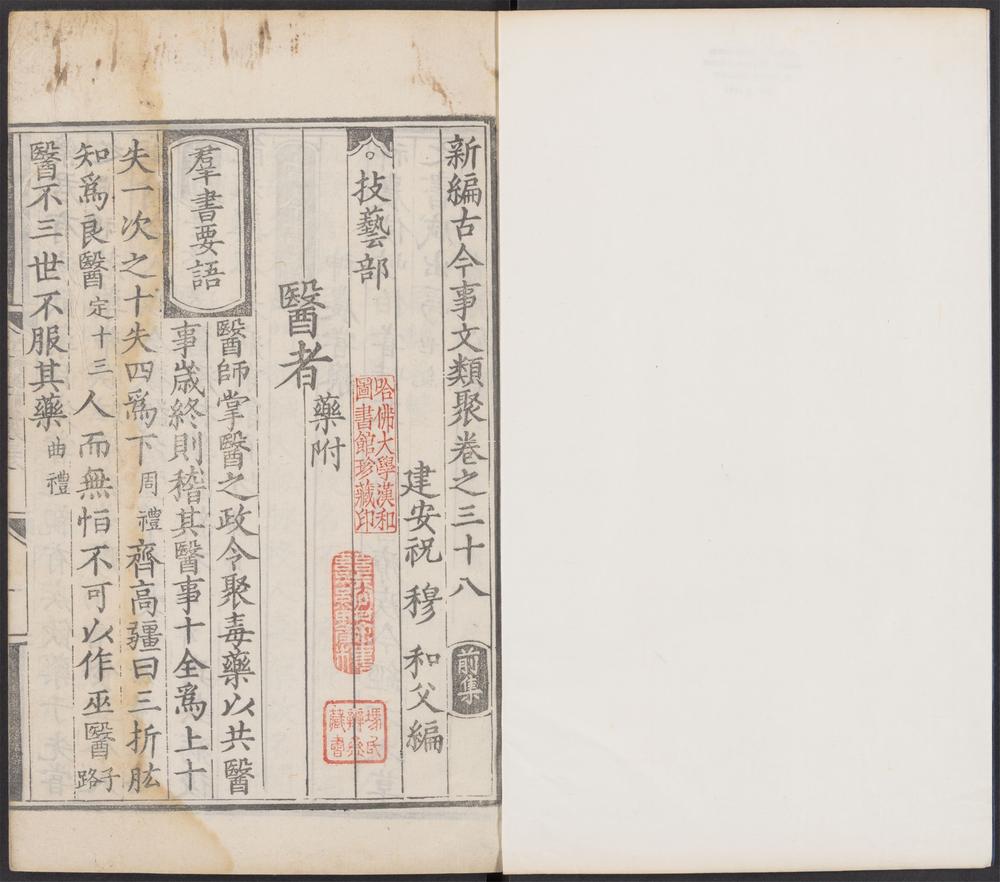 新編古今事文類聚卷之三十八 前集
建安祝 穆 和父編
技藝部
醫者 藥附
羣書要語
醫師掌醫之政令聚毒藥以共醫
事歳終則稽其醫事十全爲上十
失一次之十失四爲下 周禮 齊高彊曰三折肱
知爲良醫 定十三 人而無恒不可以作巫醫 子路
醫不三世不服其藥 曲禮
哈佛大學漢和
圖書館珍藏印